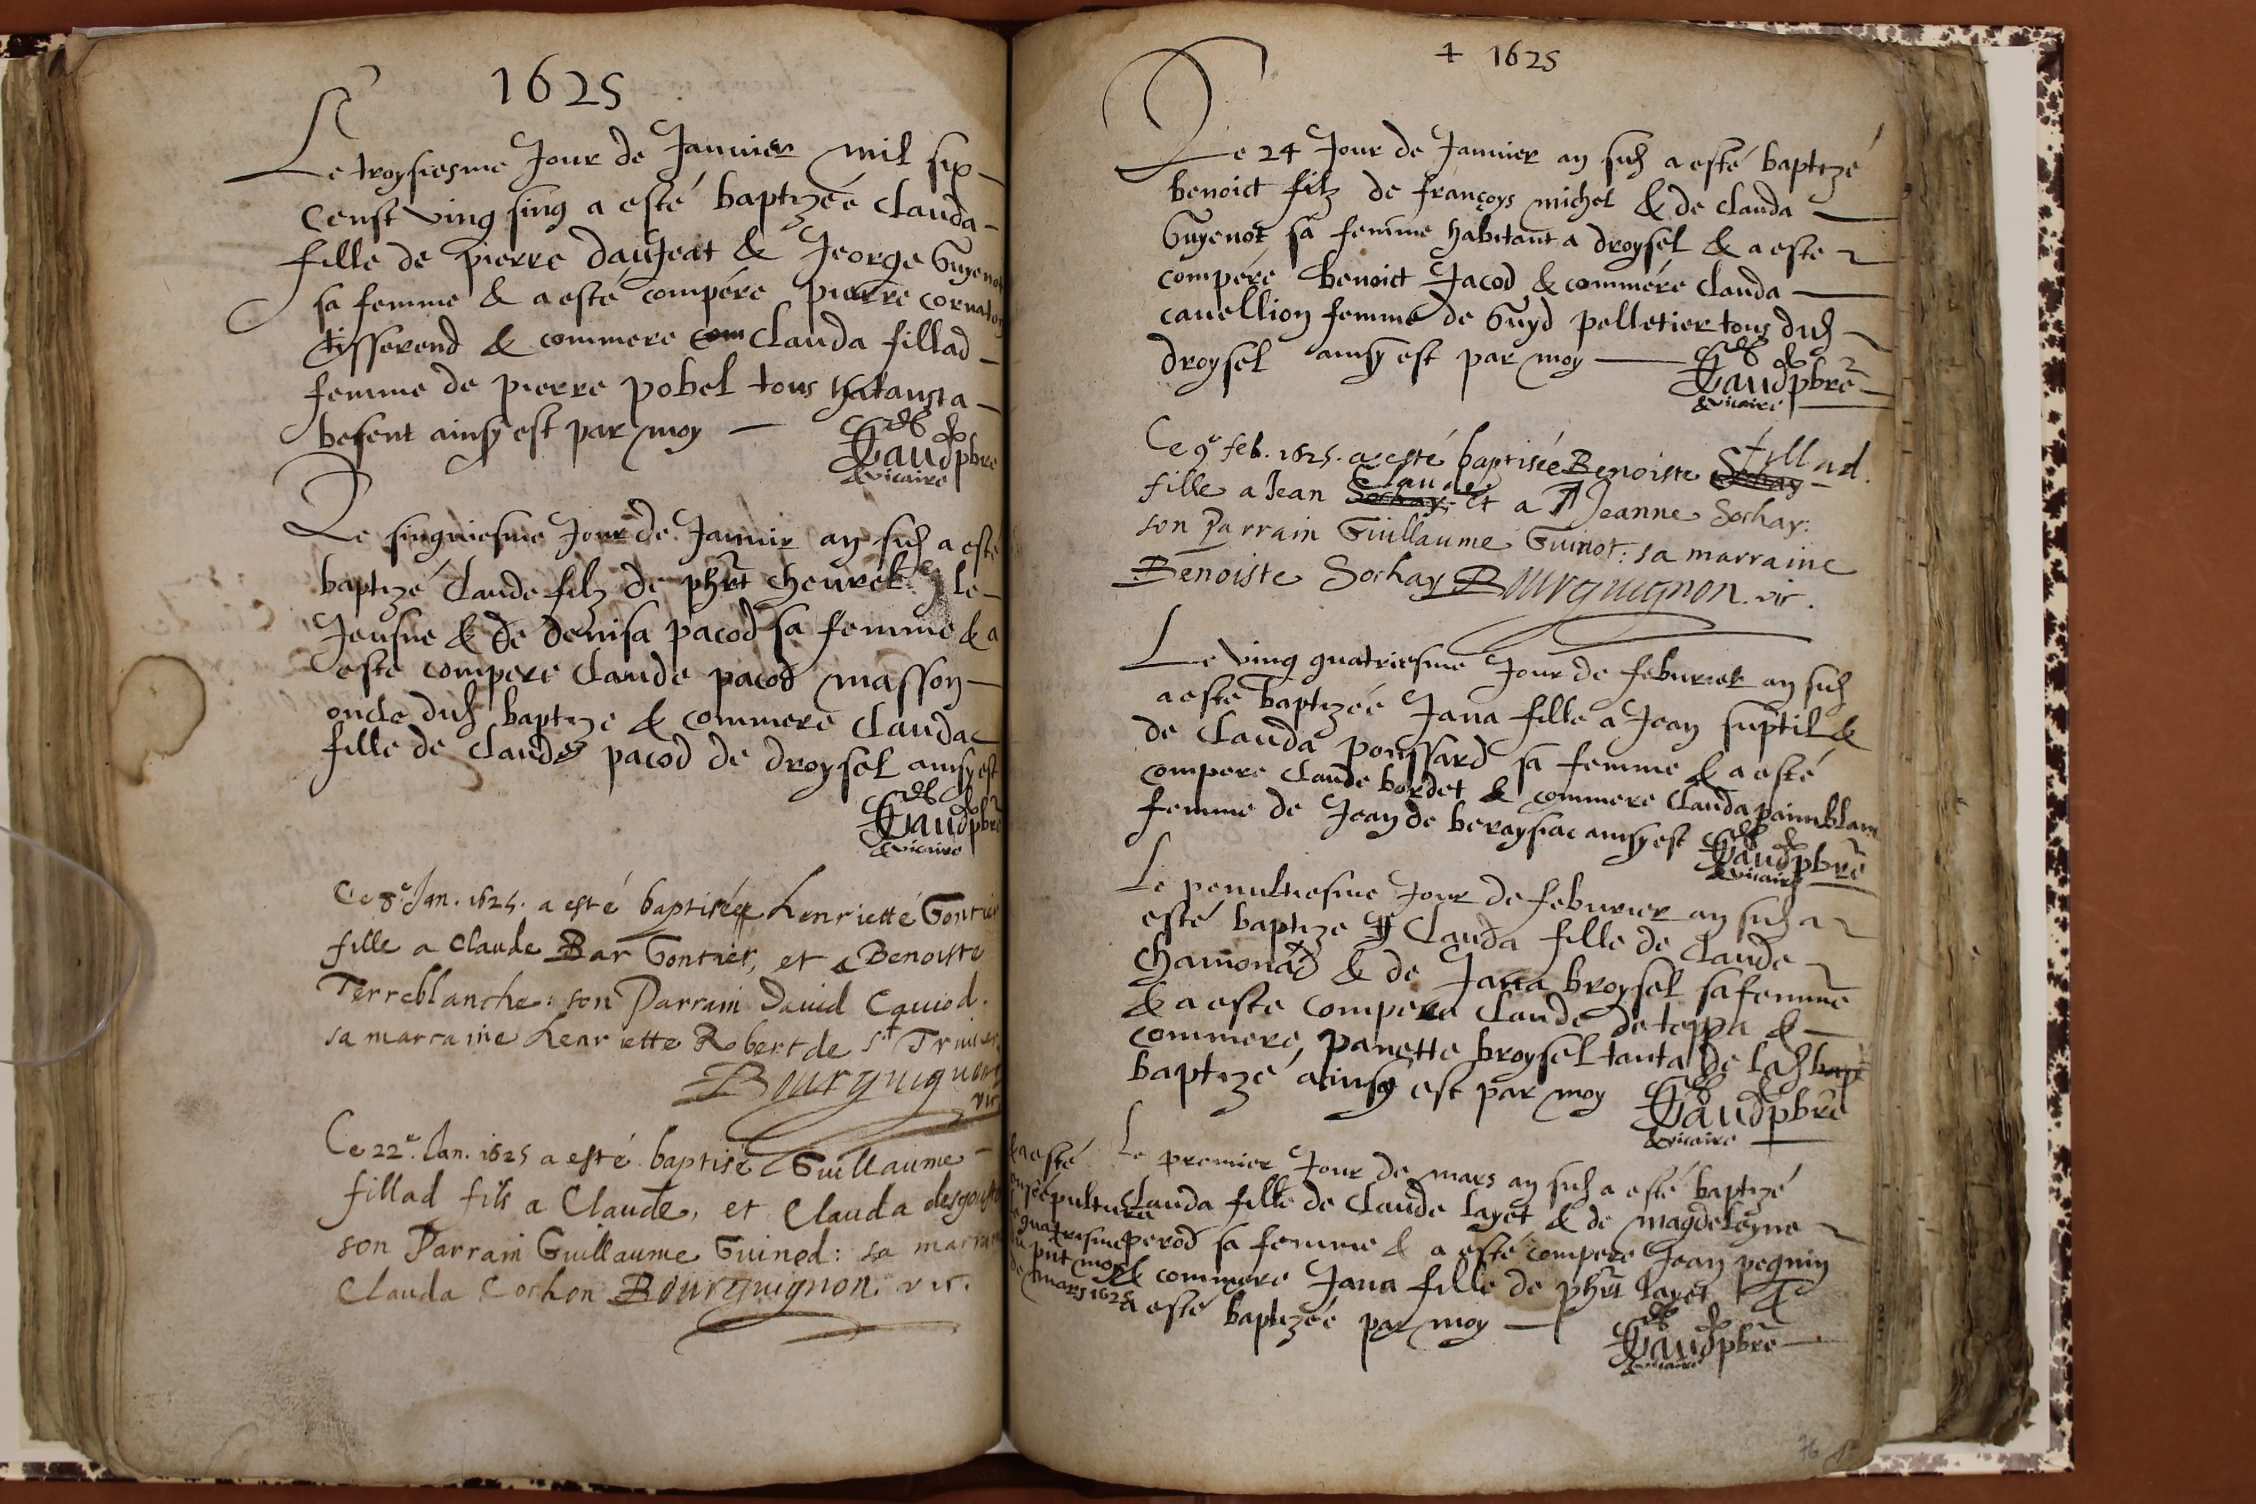 1625
Le troysiesme Jour de Januier mil six
censt ving sing a esté baptizéé clauda
fille de pierre daujeat & Jeorge Guyenot
sa femme & a esté compére pierre cornaton
tisserend & commere clauda fillad
femme de pierre pobel tous
besent ainsy est par moy
Gaud pbre
& vicaire
Le singuiesme Jour de Januir an sud a esté
baptizé claude filz de phrt le
Jeusne & de denisa pacod sa femme & a
esté compere claude pacod masson
oncle dud baptize & commere clauda
fille de claude pacod de droysel ainsy est
Gaud pbre
& vicaire
Ce 8e Jan. 1625. a esté baptisée henriette Gontier
fille a Claude Bar Gontier, et a Benoiste
Terreblanche: son Parrain David Cauiod.
sa marraine henriette Robert de St Triuier
Bourguignon
vic
Ce 22e. Ian. 1625 a esté baptisé Guillaume
fillad fils a Claude, et Clauda desgoutte
son Parrain Guillaume Guinod: sa marraine
Clauda Cochon Bourguignon. vic.
+ 1625
Le 24 Jour de Januier an sud a esté baptizé
benoict filz de françoys michel & de clauda
Guyenot sa femme habitant a droysel & a este
compére benoict Jacod & commére clauda
cauellion femme de Guyd pelletier tous dud
droysel ainsy est par moy
Gaud pbre
& vicaire
Ce 9e feb. 1625. a esté baptisée Benoiste Sochay fillad.
fille a Jean Sochay, claude et a Jeanne Sochay:
son Parrain Guillaume Guinot: sa marraine
Benoiste Sochay Bourguignon. vic.
Le ving quatriesme Jour de feburier an sud
a esté baptizéé Jana fille a Jean suptil &
de clauda poussard sa femme & a esté
compere claude bordet & commere clauda painblanc
femme de Jean de beraysiac ainsy est Gaud pbre
& vicaire
Le penultiesme Jour de feburier an sud a
esté baptize clauda fille de claude
chamonard & de Jana broysel sa femme
& a este compere claude de teppa &
commere panette broysel tanta de lad
baptizé ainsy est par moy Gaud pbre
& vicaire
Le premier Jour de mars an sud a esté baptizé
clauda fille de claude layet & de magdeleyne
perod sa femme & a esté compere Jean peguin
& commere Jana fille de phrt layet
a esté baptizéé par moy
Gaud pbre
& vicaire
& a esté
ensepulturée
le quatriesme
du pnt moys
de mars 1625
76